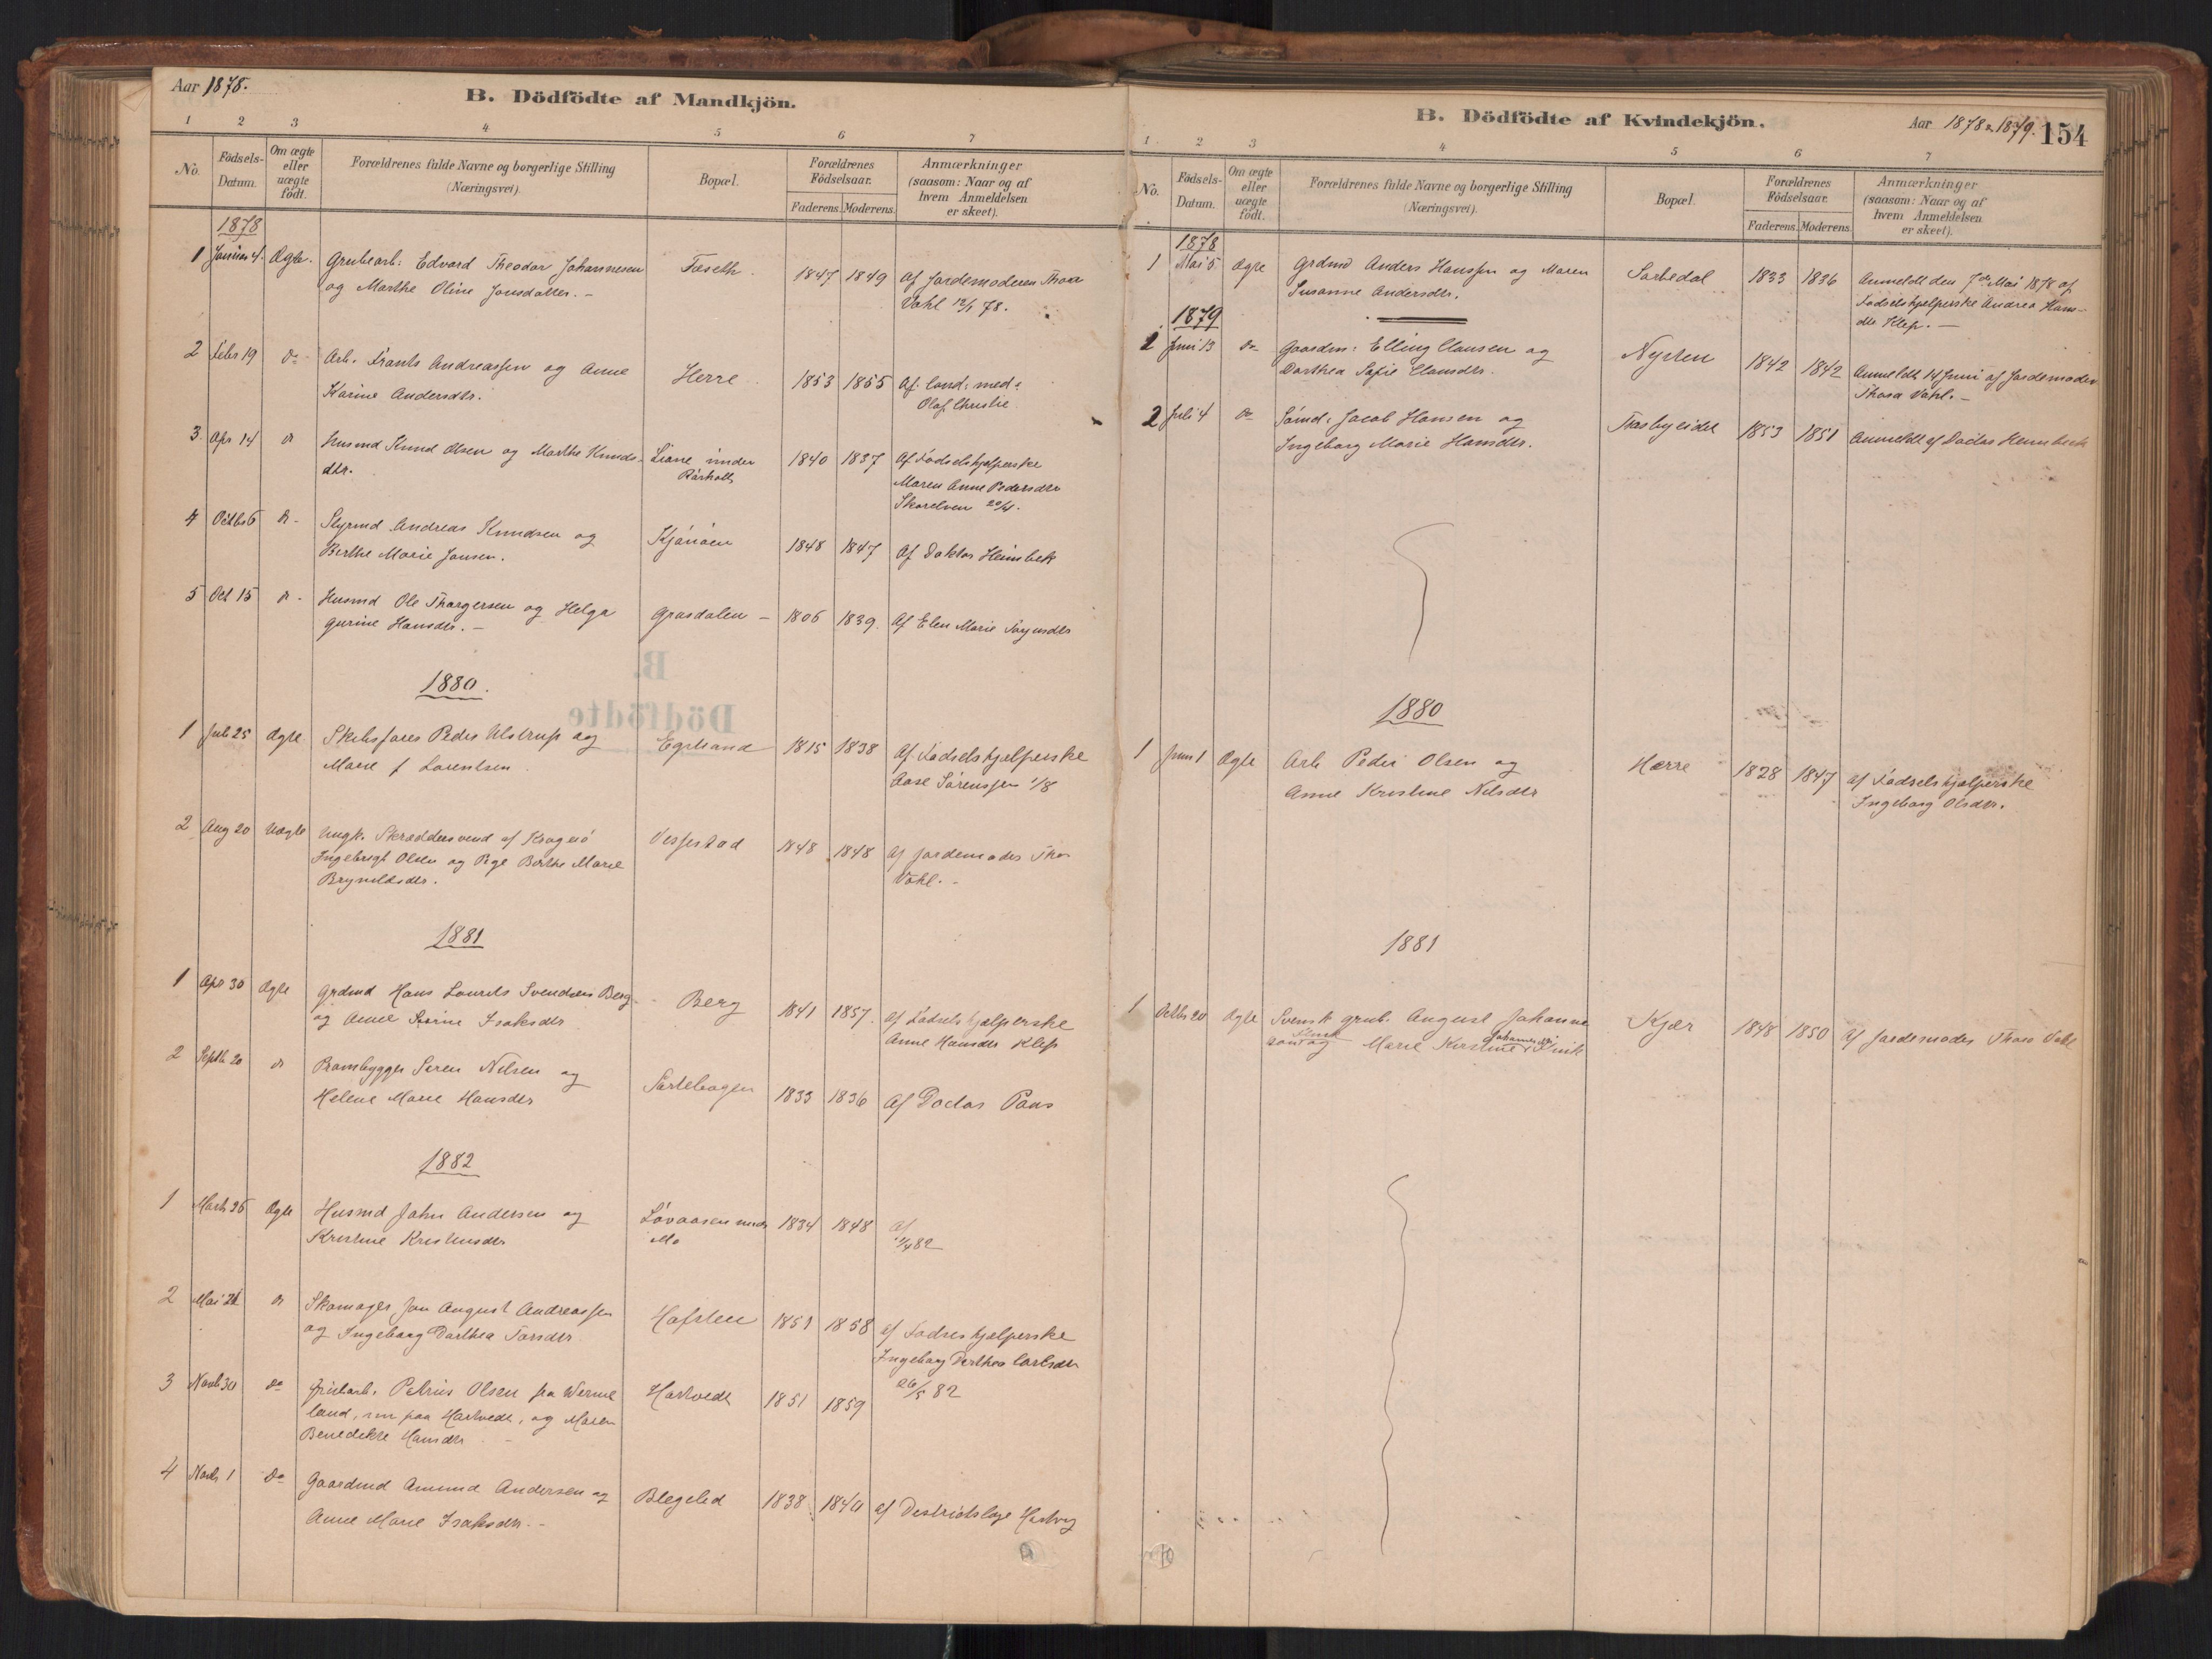 Aar 1878.
B. Dödfödte af Mandkjön.
1 2 3 4 5 6 7
No.
Födsels-Datum.
Om ægte eller uægte födt.
Forældrenes fulde Navne og borgerlige Stilling
(Næringsvei).
Bopæl.
Forældrenes Födselsaar.
Faderens. Moderens.
Anmærkninger
(saasom: Naar og af
hvem Anmeldelsen
er skeet).
1878
1 Januar 4. Ægte. Grubearb: Edvard Theodor Johannesen Toseth 1847 1849 Af Jordemoderen Thora
og Marthe Oline Jonsdatter. - Vahl 12/1 78.
2 Febr 19 do Arb. Frants Andreassen og Anne Herre 1853 1855 Af. land: med:
Karine Andersdtr. Olaf Christie
3. Apr. 14 do Husmd Knud Olsen og Marthe Knuds- Liane under 1840 1837 Af Fødselshjælperske
dtr. Rørholt Maren Anne Pedersdtr
Skorelven 20/4.
4 Octbr 6 do - Styrmd Andreas Knudsen og Kjønøen 1848 1847 Af Doktor Heimbek
Birthe Marie Jansen.
5 Oct 15 do - Husmd Ole Thorgersen og Helga Grasdalen - 1806 1839. Af Elen Marie
Gurine Hansdtr. -
1880.
1 Juli 25 Ægte Skibsfører Peder Ulstrup og 1815 1838 Af Fødselshjælperske
Marie f Lorentsen Aase Sørenssen 1/8
2 Aug 20 Uægte Ungk. Skræddersvend af Kragerø 1848 1848 Af Jordemoder Thora
Ingebrigt Olsen og Pige Birthe Marie Vahl. -
Brynildsdtr.
1881
1 Apr 30 Ægte Grdmd Hans Laurits Svendsen Berg Berg 1841 1857. af Fødselshjælperske
og Anne Isaksdtr Anne Hansdtr Klep
2 Septb 20 do Prambygger Søren Nilsen og 1833 1836 Af Doctor Paus
Helene Marie Hansdtr
1882
1 Marts 26 Ægte Husmd John Andersen og Løvaasen under 1834 1848 af
Kristine Kristensdtr Mo /4 82
2 Mai 21 do Skomager Jon August Andreassen Hafsten 1851 1858 af Fødselshjælperske
og Ingeborg Dorthea Torsdtr Ingeborg Dorthea Carlsdtr
26/5 82
3 Novb 30 do Petrus Olsen fra Werme Hartvedt 1851 1859
land, nu paa Hartvedt, og Maren
Benedikte Hansdtr. -
4 Novb 1 do Gaardmd Amund Andersen og 1838 1840 af Destriktslæge
Anne Marie Isaksdtr. -
Aar 1878 & 1879. 154
B. Dödfödte af Kvindekjön.
1 2 3 4 5 6 7
No.
Födsels-Datum.
Om ægte eller uægte födt.
Forældrenes fulde Navne og borgerlige Stilling
(Næringsvei).
Bopæl.
Forældrenes Födselsaar.
Faderens. Moderens.
Anmærkninger
(saasom: Naar og af
hvem Anmeldelsen
er skeet).
1878
1 Mai 5 Ægte Grdmd Anders Hanssen og Maren Sørbedal 1833 1836 Anmeldt den 7de Mai 1878 af
Susanne Andersdtr. Fødselshjælperske Andrea Hans-
dtr Klep. -
1879
1 Juni 13 do Gaardm: Elling Clausen og Nysten 1842 1842 Anmeldt 14 Juni af Jordemoder
Dorthea Sofie Clausdtr. Thora Vahl. -
2 Juli 4 do Sømd: Jacob Hansen og Trosbyeidet 1853 1851 Anmeldt af Doctor Heimbeck
Ingeborg Marie Hansdtr.
1880
1 Juni 1 Ægte Arb Peder Olsen og Herre 1828 1847 af Fødselshjælperske
Anne Kristine Nilsdtr Ingeborg Olsdtr.
1881
1 Octbr 20 Ægte Svensk grub. August Johannes Kjær 1848 1850 af Jordemoder Thora Vahl
son og Marie Kirstine Johannesdtr